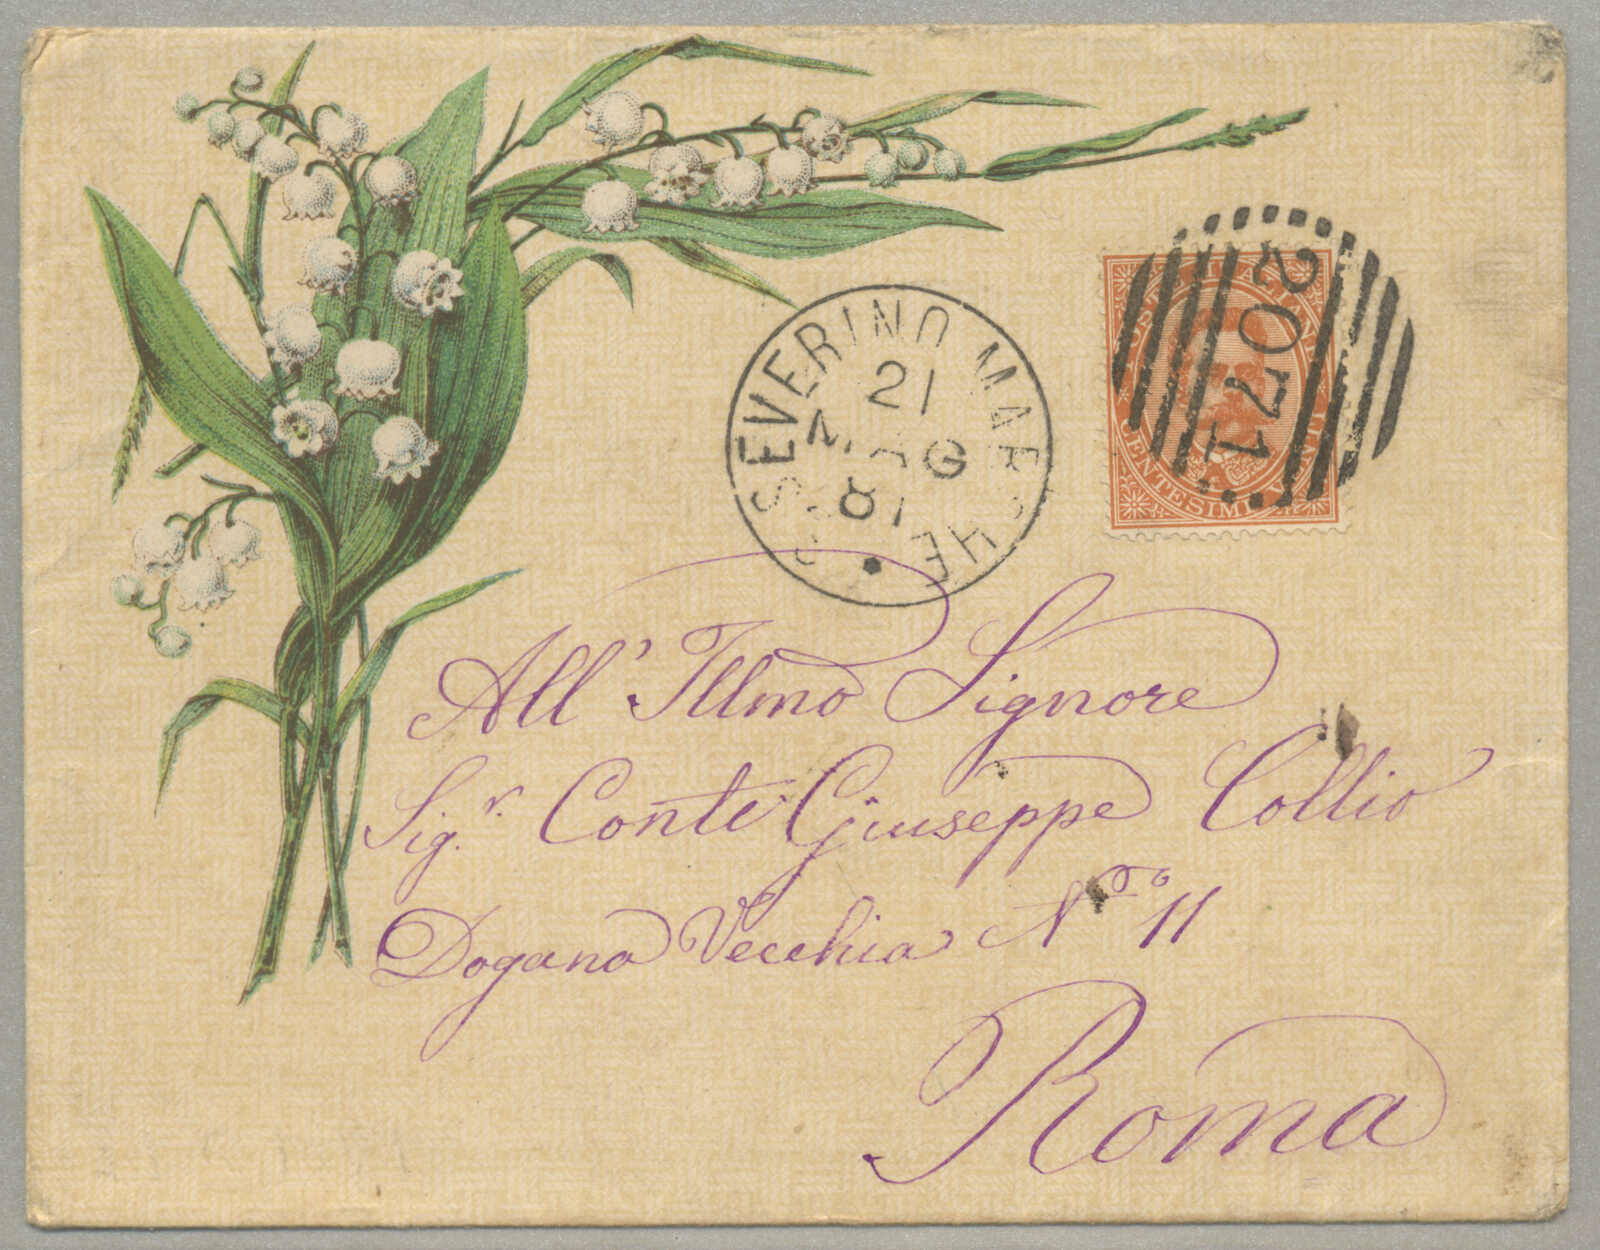 SEVERINO MARCHE
21
MAG
81
2071
POSTE ITALIANE
CENTESIMI VENTI
All' Illmo Signore
Sig.r Conte Giuseppe Collio
Dogana Vecchia No 11
Roma